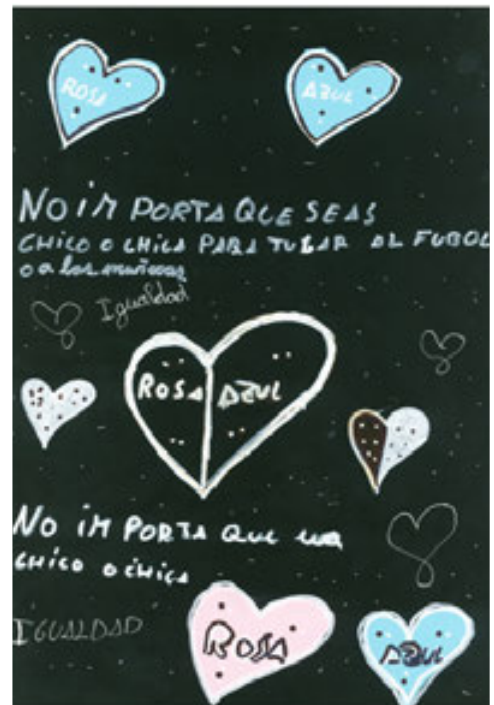 ROSA AZUL
NO IMPORTA QUE SEAS
CHICO O CHICA PARA JUGAR AL FUBOL
o a las muñecas
Igualdad
ROSA AZUL
NO IMPORTA QUE
CHICO O CHICA
IGUALDAD
ROSA AZUL